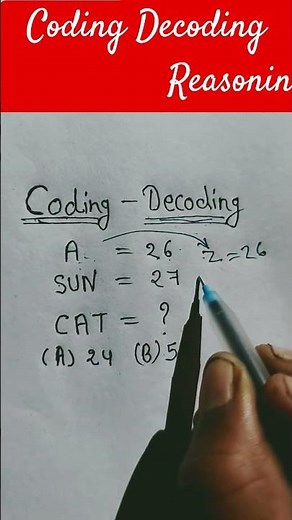 Coding Decoding
Reasonin
Coding - Decoding
A = 26 Z = 26
SUN = 27
CAT = ?
(A) 24 (B) 5